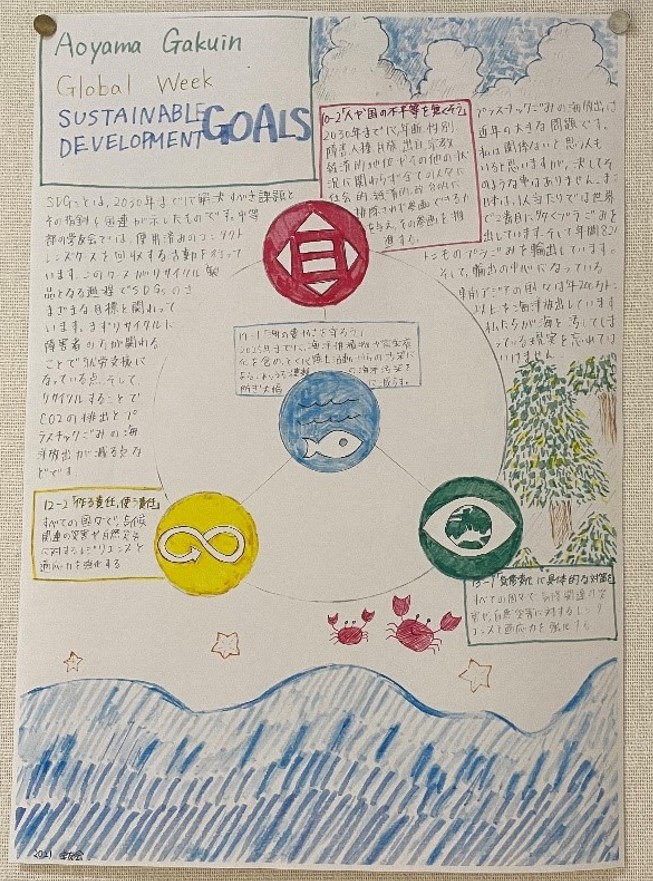 Aoyama Gakuin
Global Week
SUSTAINABLE
DEVELOPMENT GOALS
SDGsとは、2030年までに解決すべき課題と
その指針を国連が示したものです。中等
部の学友会では、使用済みのコンタクト
レンズケースを回収する活動を行って
います。このケースがリサイクル製
品となる過程でSDGsのさ
まざまな目標と関わって
います。まずリサイクルに
障害者の方が関わる
ことで就労支援に
なっている点、そして
リサイクルすることで
CO2の排出とプ
ラスチックごみの海
洋放出が減る点な
どです
10-2「人や国の不平等を無くそう」
2030年までに、年齢、性別、
障害、人種、民族、出自、宗教、
経済的地位やその他の状
況に関わらず全ての人々に
社会的、経済的、政治的に
排除されず参画できる力
を与え、その参画を推
進する。
プラスチックごみの海放出は
近年の大きな問題です。
私は関係ないと思う人も
いると思いますが、決してそ
のような事はありません。
日本は、1人当たりでは世界
で2番目に多くプラごみを
出しています。そして年間
トンものプラごみを輸出しています。
そして、輸出の中心になっている
東南アジアの国々は年
以上を海洋放出しています
私たちが海を汚してしま
っている現実を忘れては
いけません。
14-1「海の豊かさを守ろう」
2025年までに、海洋堆積物や富栄養
化を含め、とくに陸上活動からの汚染に
よる、あらゆる種類の海洋汚染を
防ぎ大幅に減らす。
12-2「作る責任、使う責任」
すべての国々で、気候
関連の災害や自然災害
に対するレジリエンスと
適応力を強化する
13-1「気候変動に具体的な対策を」
すべての国々で、気候関連の災
害や自然災害に対するレジリ
エンスと適応力を強化する
2021 学友会